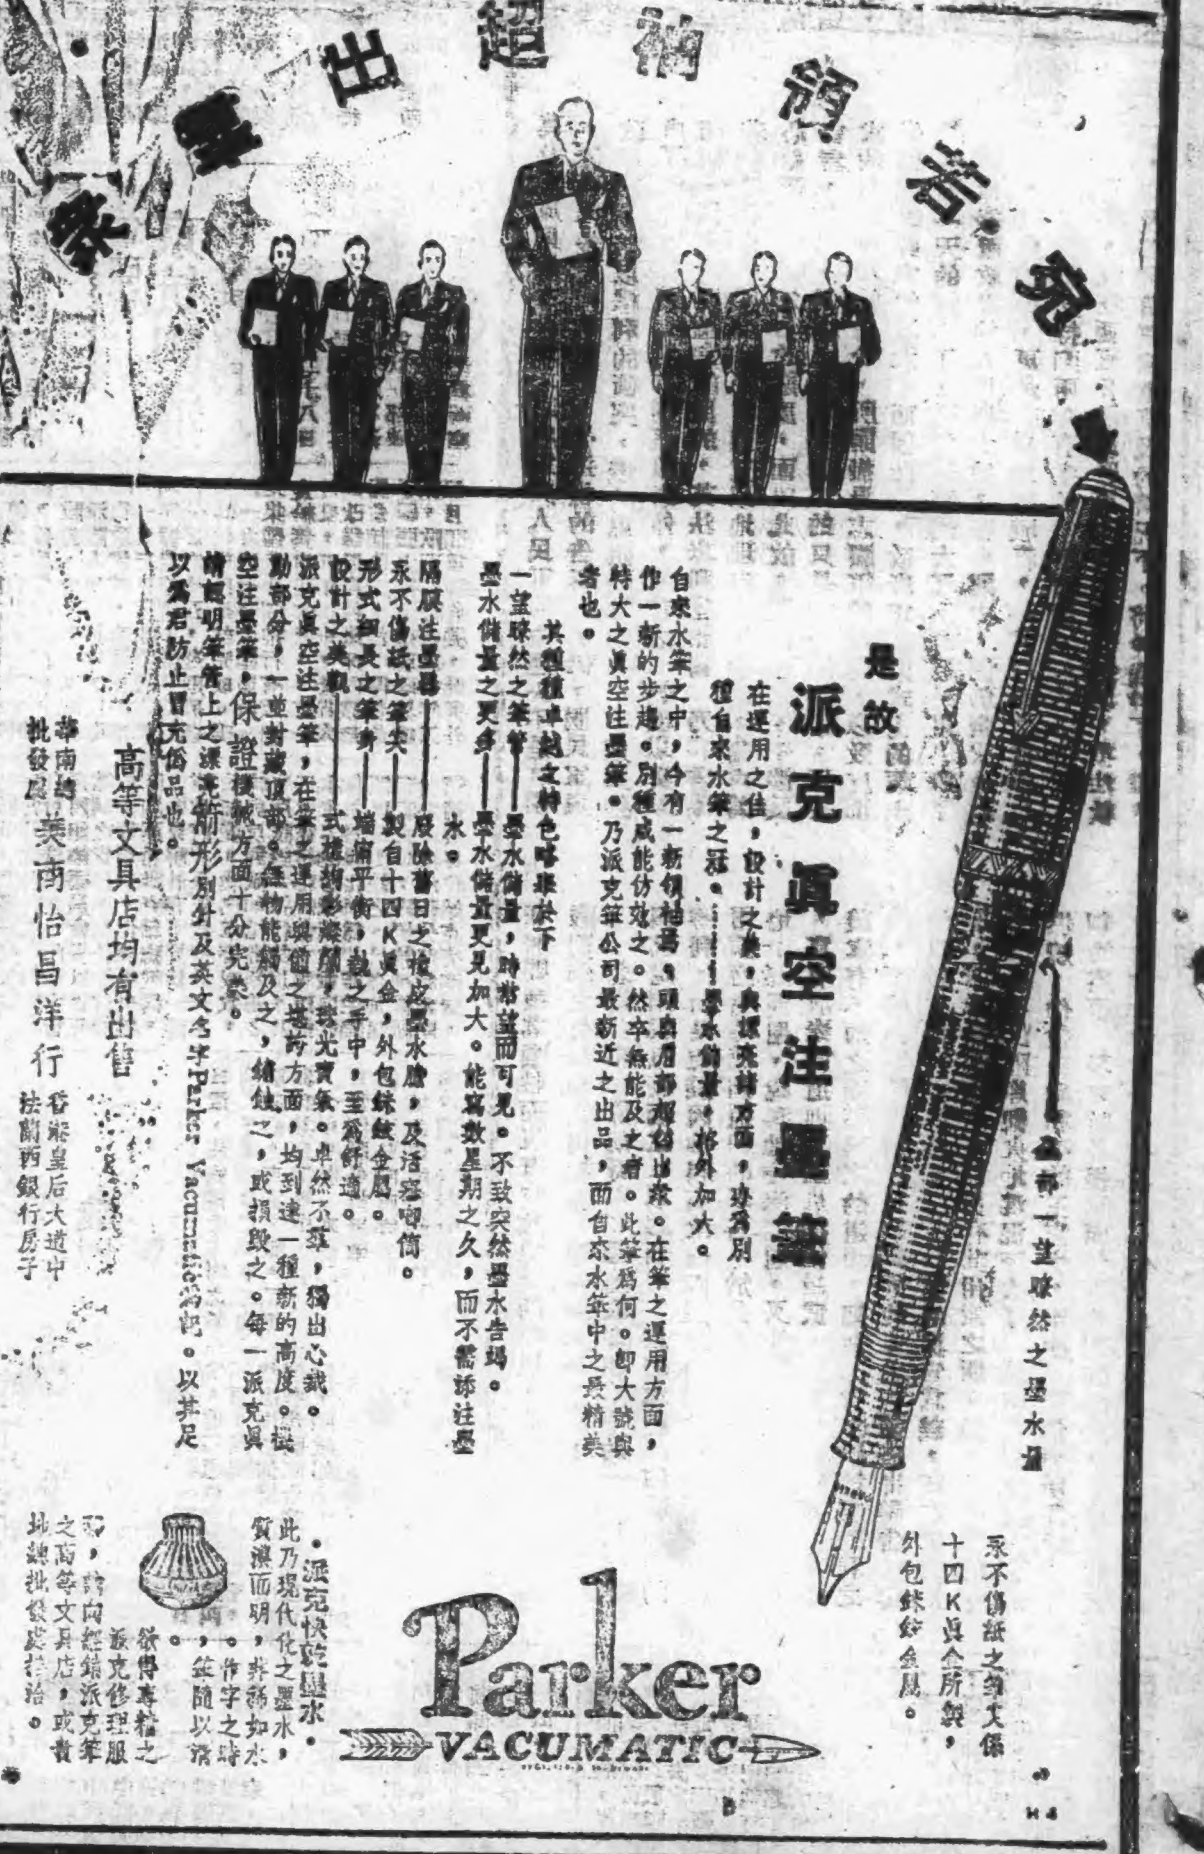 宛若領袖超出羣衆
是故
派克眞空注墨筆
在運用之佳，設計之美，與漂亮諸方面，亦爲別
種自來水筆之冠。墨水儲量，格外加大。
自來水筆之中，今有一新領袖焉。頭與肩部超出衆。在筆之運用方面，
作一新的步趨。別種咸能仿效之。然卒無能及之者。此筆爲何。卽大號與
特大之眞空注墨筆。乃派克筆公司最新近之出品，而自來水筆中之最精美
者也。
其種種卓越之特色略舉於下
一望瞭然之筆管——墨水儲量，時常望而可見。不致突然墨水告竭。
墨水儲量之更多——墨水儲量更見加大。能寫數星期之久，而不需添注墨
水。
隔膜注墨器——廢除舊日之橡皮墨水膽，及活塞唧筒。
永不傷紙之筆尖——製自十四K眞金，外包銥鉑金屬。
形式細長之筆身——均衡平衡，執之手中，至爲舒適。
設計之美觀——式樣絢彩燦爛，珠光寶氣。卓然不羣，獨出心裁。
派克眞空注墨筆，在筆之運用與儲之方面，均到達一種新的高度。機
動部分，一並封藏頂部。無物能觸及之，銹蝕之，或損毀之。每一派克眞
空注墨筆，保證機械方面十分完美。
請認明筆管上之漂亮箭形別針及英文名字Parker Vacumatic標記。以其足
以爲君防止冒充僞品也。
高等文具店均有出售
華南總
批發處
美商怡昌洋行
香港皇后大道中
法蘭西銀行房子
全部一望瞭然之墨水量
永不傷紙之筆尖係
十四K眞金所製，
外包銥鉑金屬。
Parker
VACUMATIC
·派克快乾墨水·
此乃現代化之墨水，
質濃而明，非稀如水
。作字之時
，並隨以清
。
欲得專精之
派克修理服
務，請向經銷派克筆
之高等文具店，或貴
埠總批發處接洽。
H 4